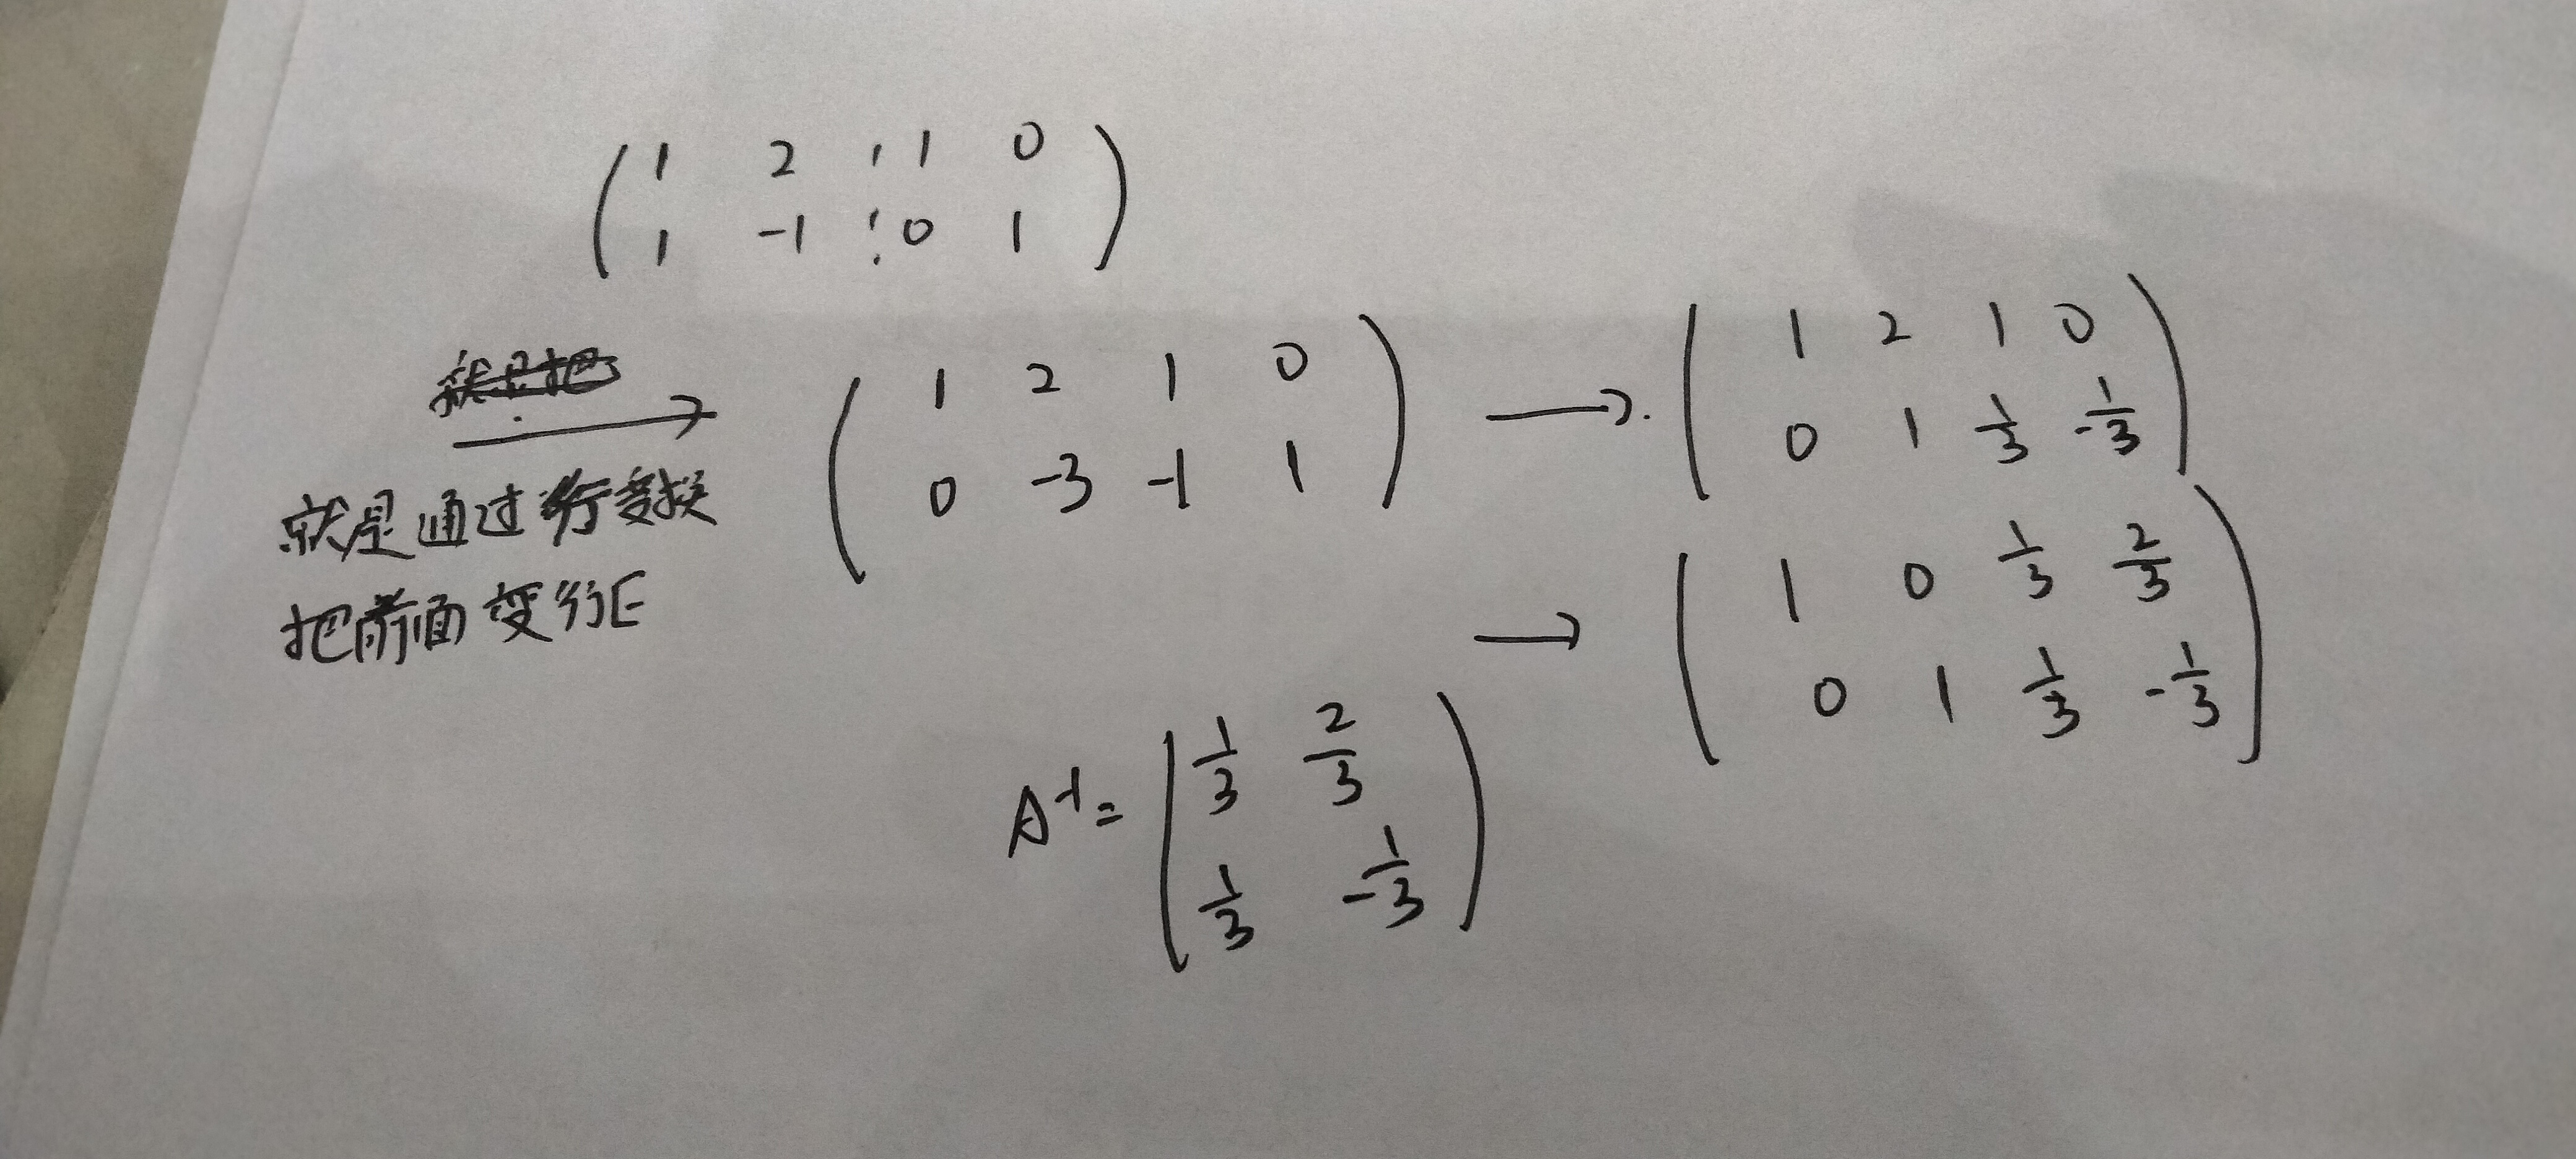 ( 1 2 ¦ 1 0 )
( 1 -1 ¦ 0 1 )
→ ( 1 2 1 0 ) → ( 1 2 1 0 )
( 0 -3 -1 1 ) ( 0 1 1/3 -1/3 )
就是通过行变换
把前面变行E
→ ( 1 0 1/3 2/3 )
( 0 1 1/3 -1/3 )
A⁻¹= ( 1/3 2/3 )
( 1/3 -1/3 )